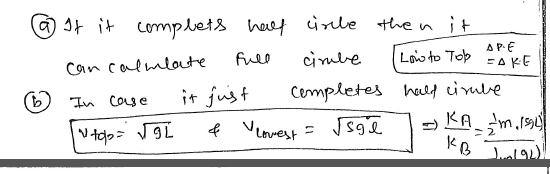 (a) If it complets half circle then it
can calculate full circle
Low to Top ΔP.E
= Δ K.E
(b) In case it just completes half circle
Vtop = √gL & Vlowest = √5gl ⇒ KA/KB = ½m.(5gL)